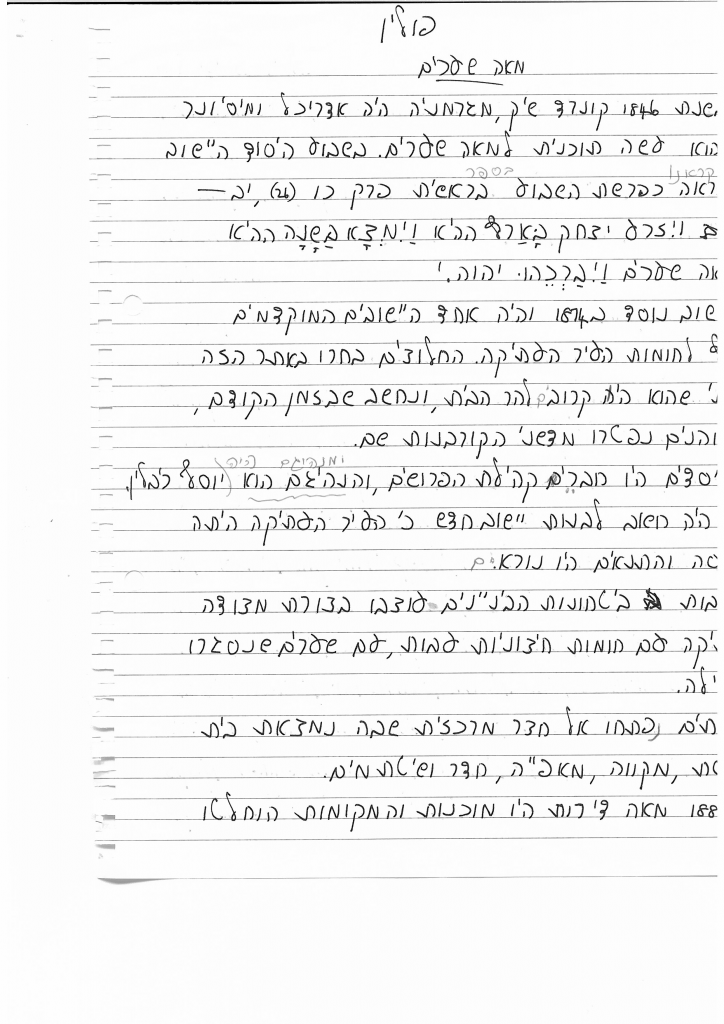 פולין
מאה שערים
שנת 1846 קונרד שיק, מגרמניה היה אדריכל ומיסיונר
הוא עשה תוכנית למאה שערים. בשבוע היסוד היישוב
קראנו בספר
ראה כפרשת השבוע בראשית פרק כו (26), יב—
ויזרע יצחק בָּאָרץ ההיא וַיִּמְצָא בַּשָנָה ההיא
אה שערים וַיְבָרְכֵהוּ יהוה.י
שוב נוסד ב1874 והיה אחד היישובים המוקדמים
לחומות העיר העתיקה. החלוצים בחרו באתר הזה
שהוא היה קרוב להר הבית, ונחשב שבזמן הקודם,
והנים נפטרו מדשני הקורבנות שם.
ומנהיגם היה
יסדים היו חברים קהילת הפרושים, והנהיגם הוא יוסף רבלין.
היה חשוב לבנות יישוב חדש כי העיר העתיקה היתה
טה והתנאים היו נוראים
בות ביטחונות הבניינים עוצבו בצורת מצודה
יקה עם חומות חיצוניות עבות, עם שערים שנסגרו
ילה.
תים נפתחו אל חדר מרכזית שבה נמצאת בית
סת, מקווה, מאפייה, חדר ושיטת מים.
188 מאה דירות היו מוכנות והמקומות הוחלטו